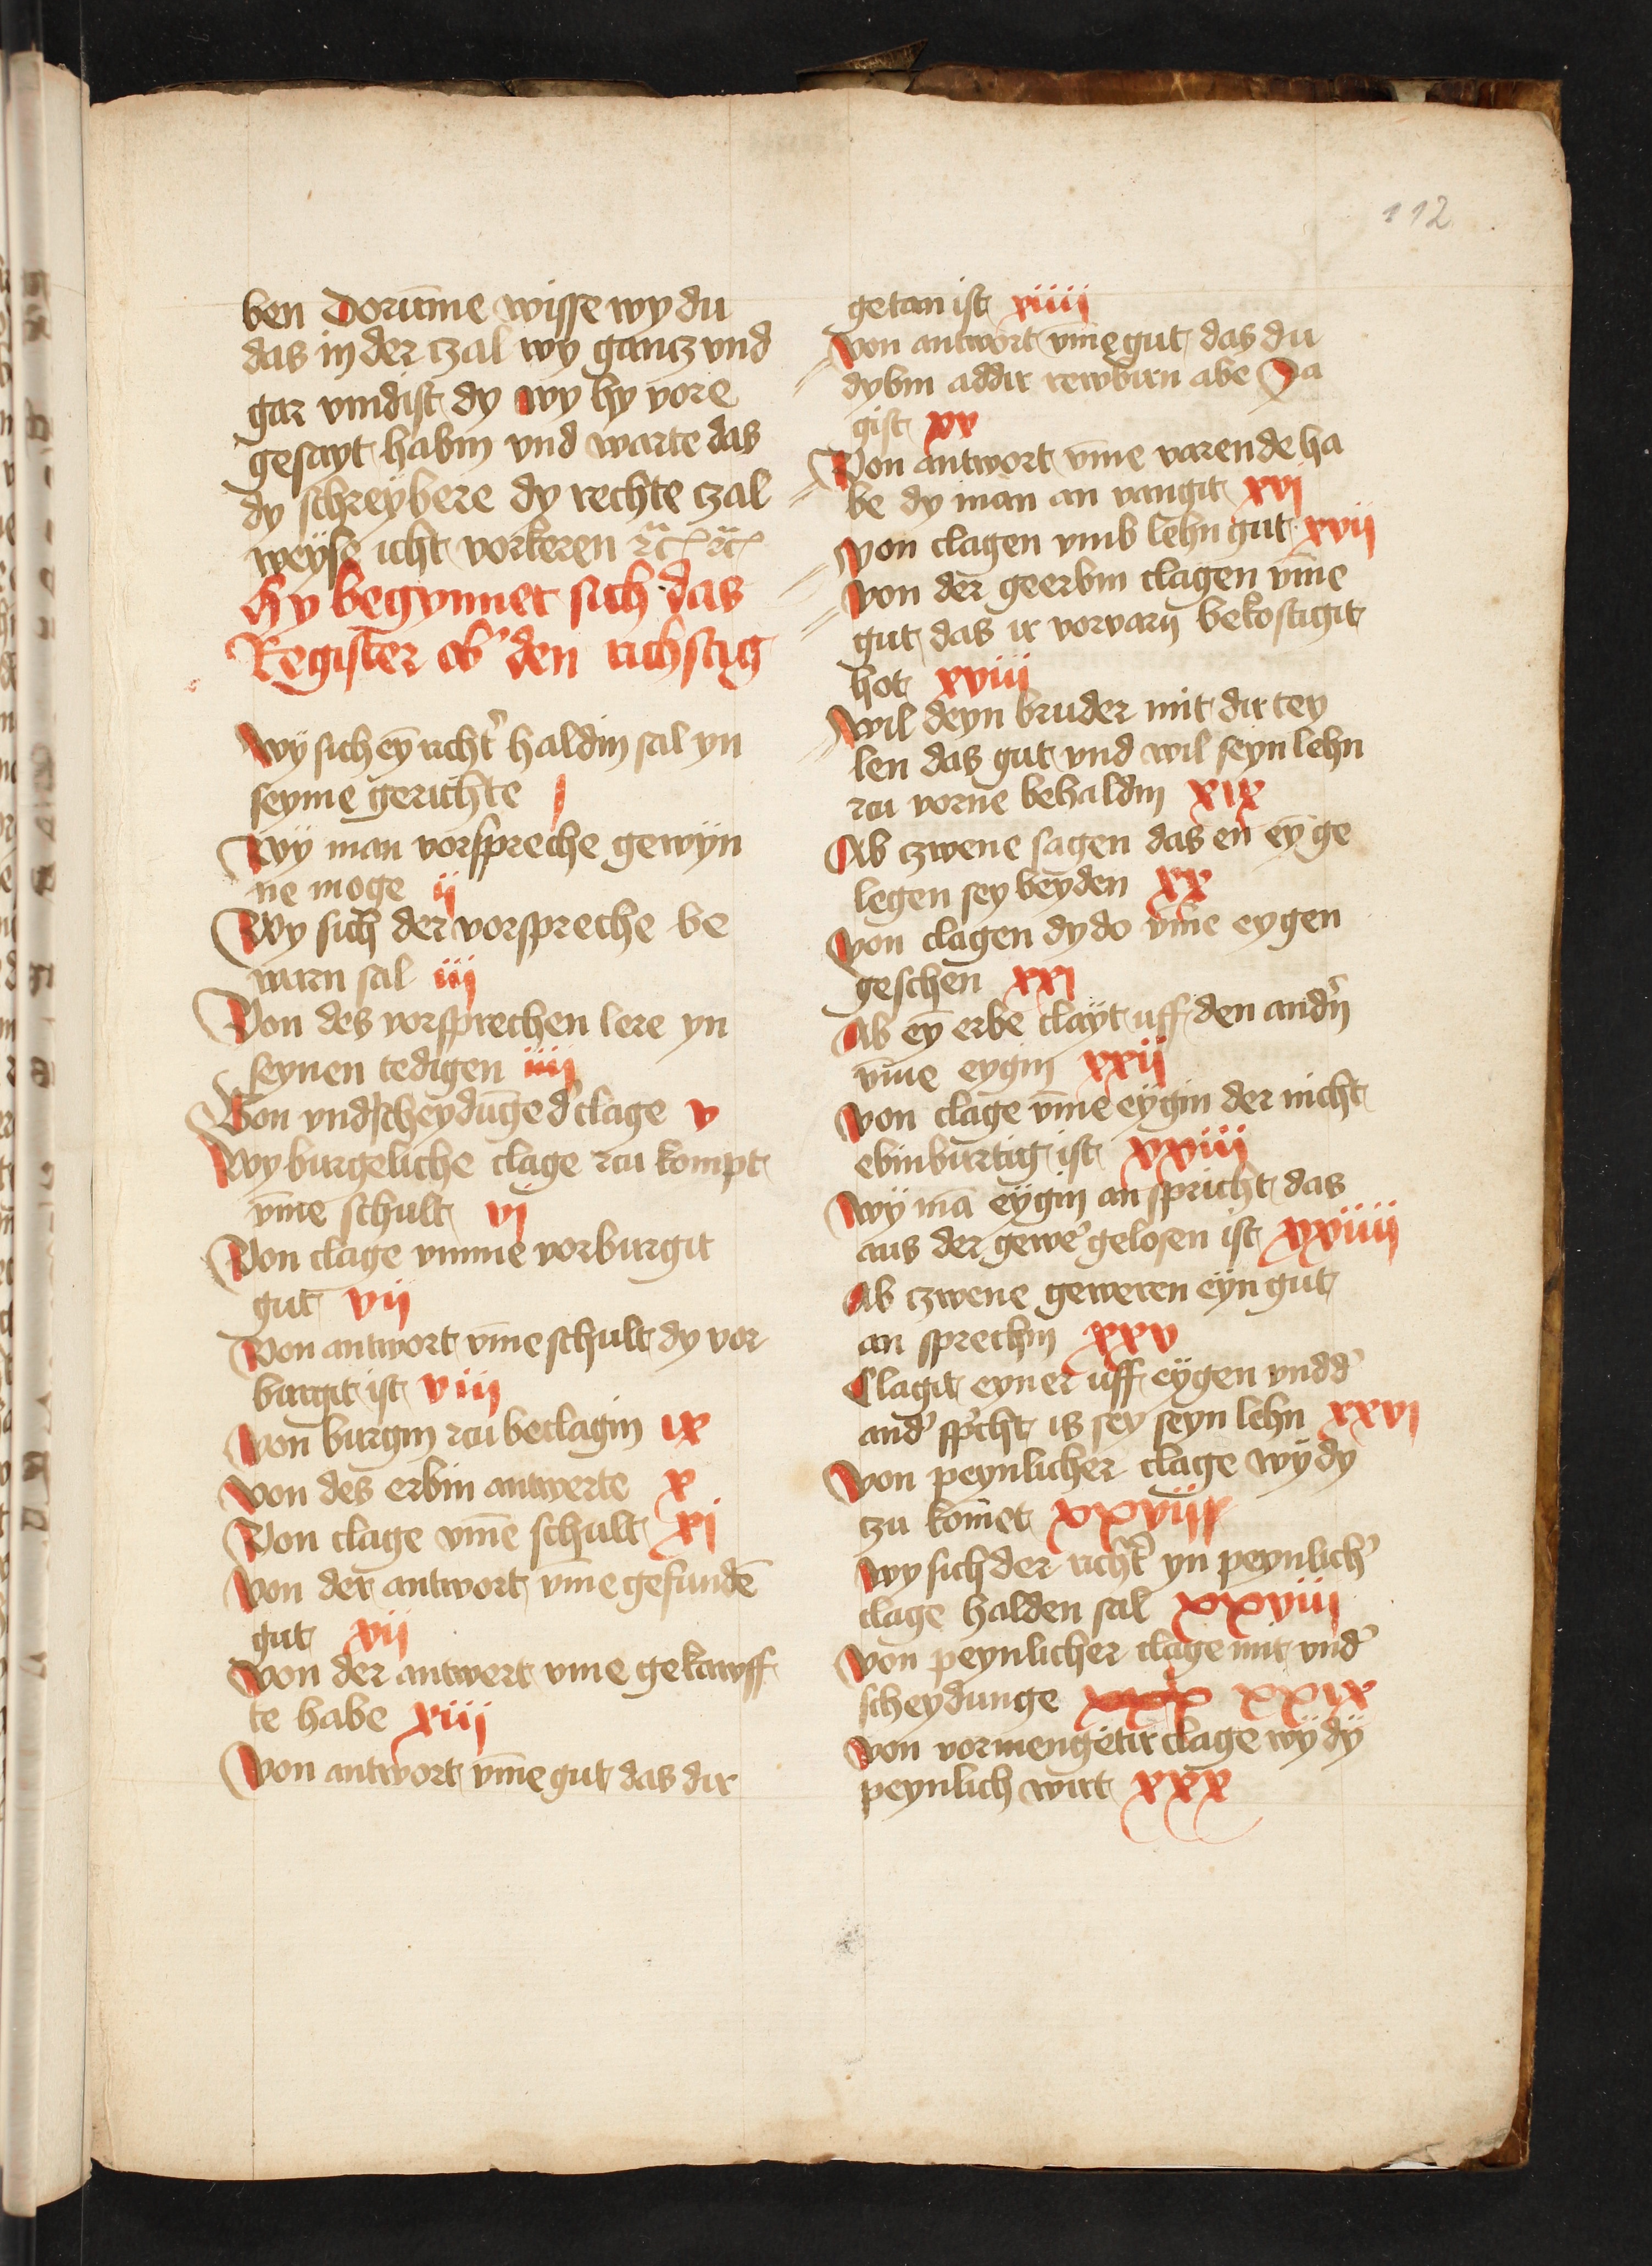 112
ben Dorūme wisse wy du
das in der czal wy gancz vnd
gar vindist dy wy hy vore
gesayt habin vnd warte das
dy schreybere dy rechte czal
weyse icht vorkeren
Hy begynnet sich das
Register ob' den richstig
Wy sich eȳ richt' haldin sal yn
seyme gerichte j
Wy man vorspreche gewyn
ne moge ij
Wy sich der vorspreche be
warn sal iij
Von des vorsprechen lere yn
seynen tedigen iiij
Von vndscheydunge d' clage v
Wy burgeliche clage zcu kompt
vm̄e schult vj
Von clage vmme vorburgit
gut vij
Von antwort vm̄e schult dy vor
burgit ist viij
Von burgin zcu beclagin ix
Von des erbin antwerte x
Von clage vm̄e schult xj
Von der antwort vm̄e gefundē
gut xij
Von der antwert vm̄e gekawff
te habe xiij
Von antwort vm̄e gut das dir
getan ist xiiij
Von antwort vm̄e gut das du
dybin addir rewbirn abe Ja
gist xv
Von antwort vm̄e varende ha
be dy man an vangit xvj
Von clagen vmb lehn gut xvij
Von der geerbin clagen vm̄e
gut das ir vorvarn bekostigit
hot xviij
Wil deyn bruder mit dir tey
len das gut vnd wil seyn lehn
zcu vorne behaldin xix
Ab czwene sagen das en eȳ ge
legen sey beyden xx
Von clagen dy do vm̄e eygen
geschen xxj
Ab eȳ erbe clayt uff den andn̄
vm̄e eygin xxij
Von clage vm̄e eygin der nicht
ebinburtig ist xxiij
Wy mā eygin an spricht das
aus der gewe' gelosen ist xxiiij
Ab czwene geweren eyn gut
an sprechin xxv
Clagit eyner uff eygen vnd d'
and' sp'cht is sey seyn lehn xxvj
Von peynlicher clage wy dy
czu komet xxvij
Wy sich der richt' yn peynlich'
clage halden sal xxviij
Von peynlicher clage mit vnd'
scheydunge xxx xxix
Von vormengetir clage wy dy
peynlich wirt xxx